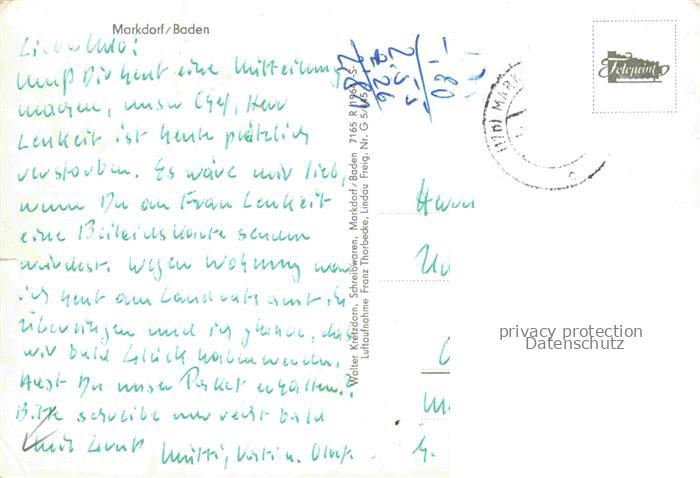 Markdorf/Baden
Lieber Udo!
Muß Dir heut eine Mitteilung
machen, unser Chef, Herr
Lenkeit ist heute plötzlich
verstorben. Es wäre mir lieb,
wenn Du an Frau Lenkeit
eine Beileidskarte senden
würdest. Wegen Wohnung war
ich heut am Landratsamt in
Überlingen und ich glaube, daß
wir bald Glück haben werden.
Hast Du unser Paket erhalten?
Bitte schreibe uns recht bald
Mutti, Vati u. Olaf.
Walter Kretzdorn, Schreibwaren, Markdorf/Baden 7165 R/1960-S-
Luftaufnahme Franz Thorbecke, Lindau Freig. Nr. G 5/
Fotoprint
(17b) MARK
Herrn
privacy protection
Datenschutz